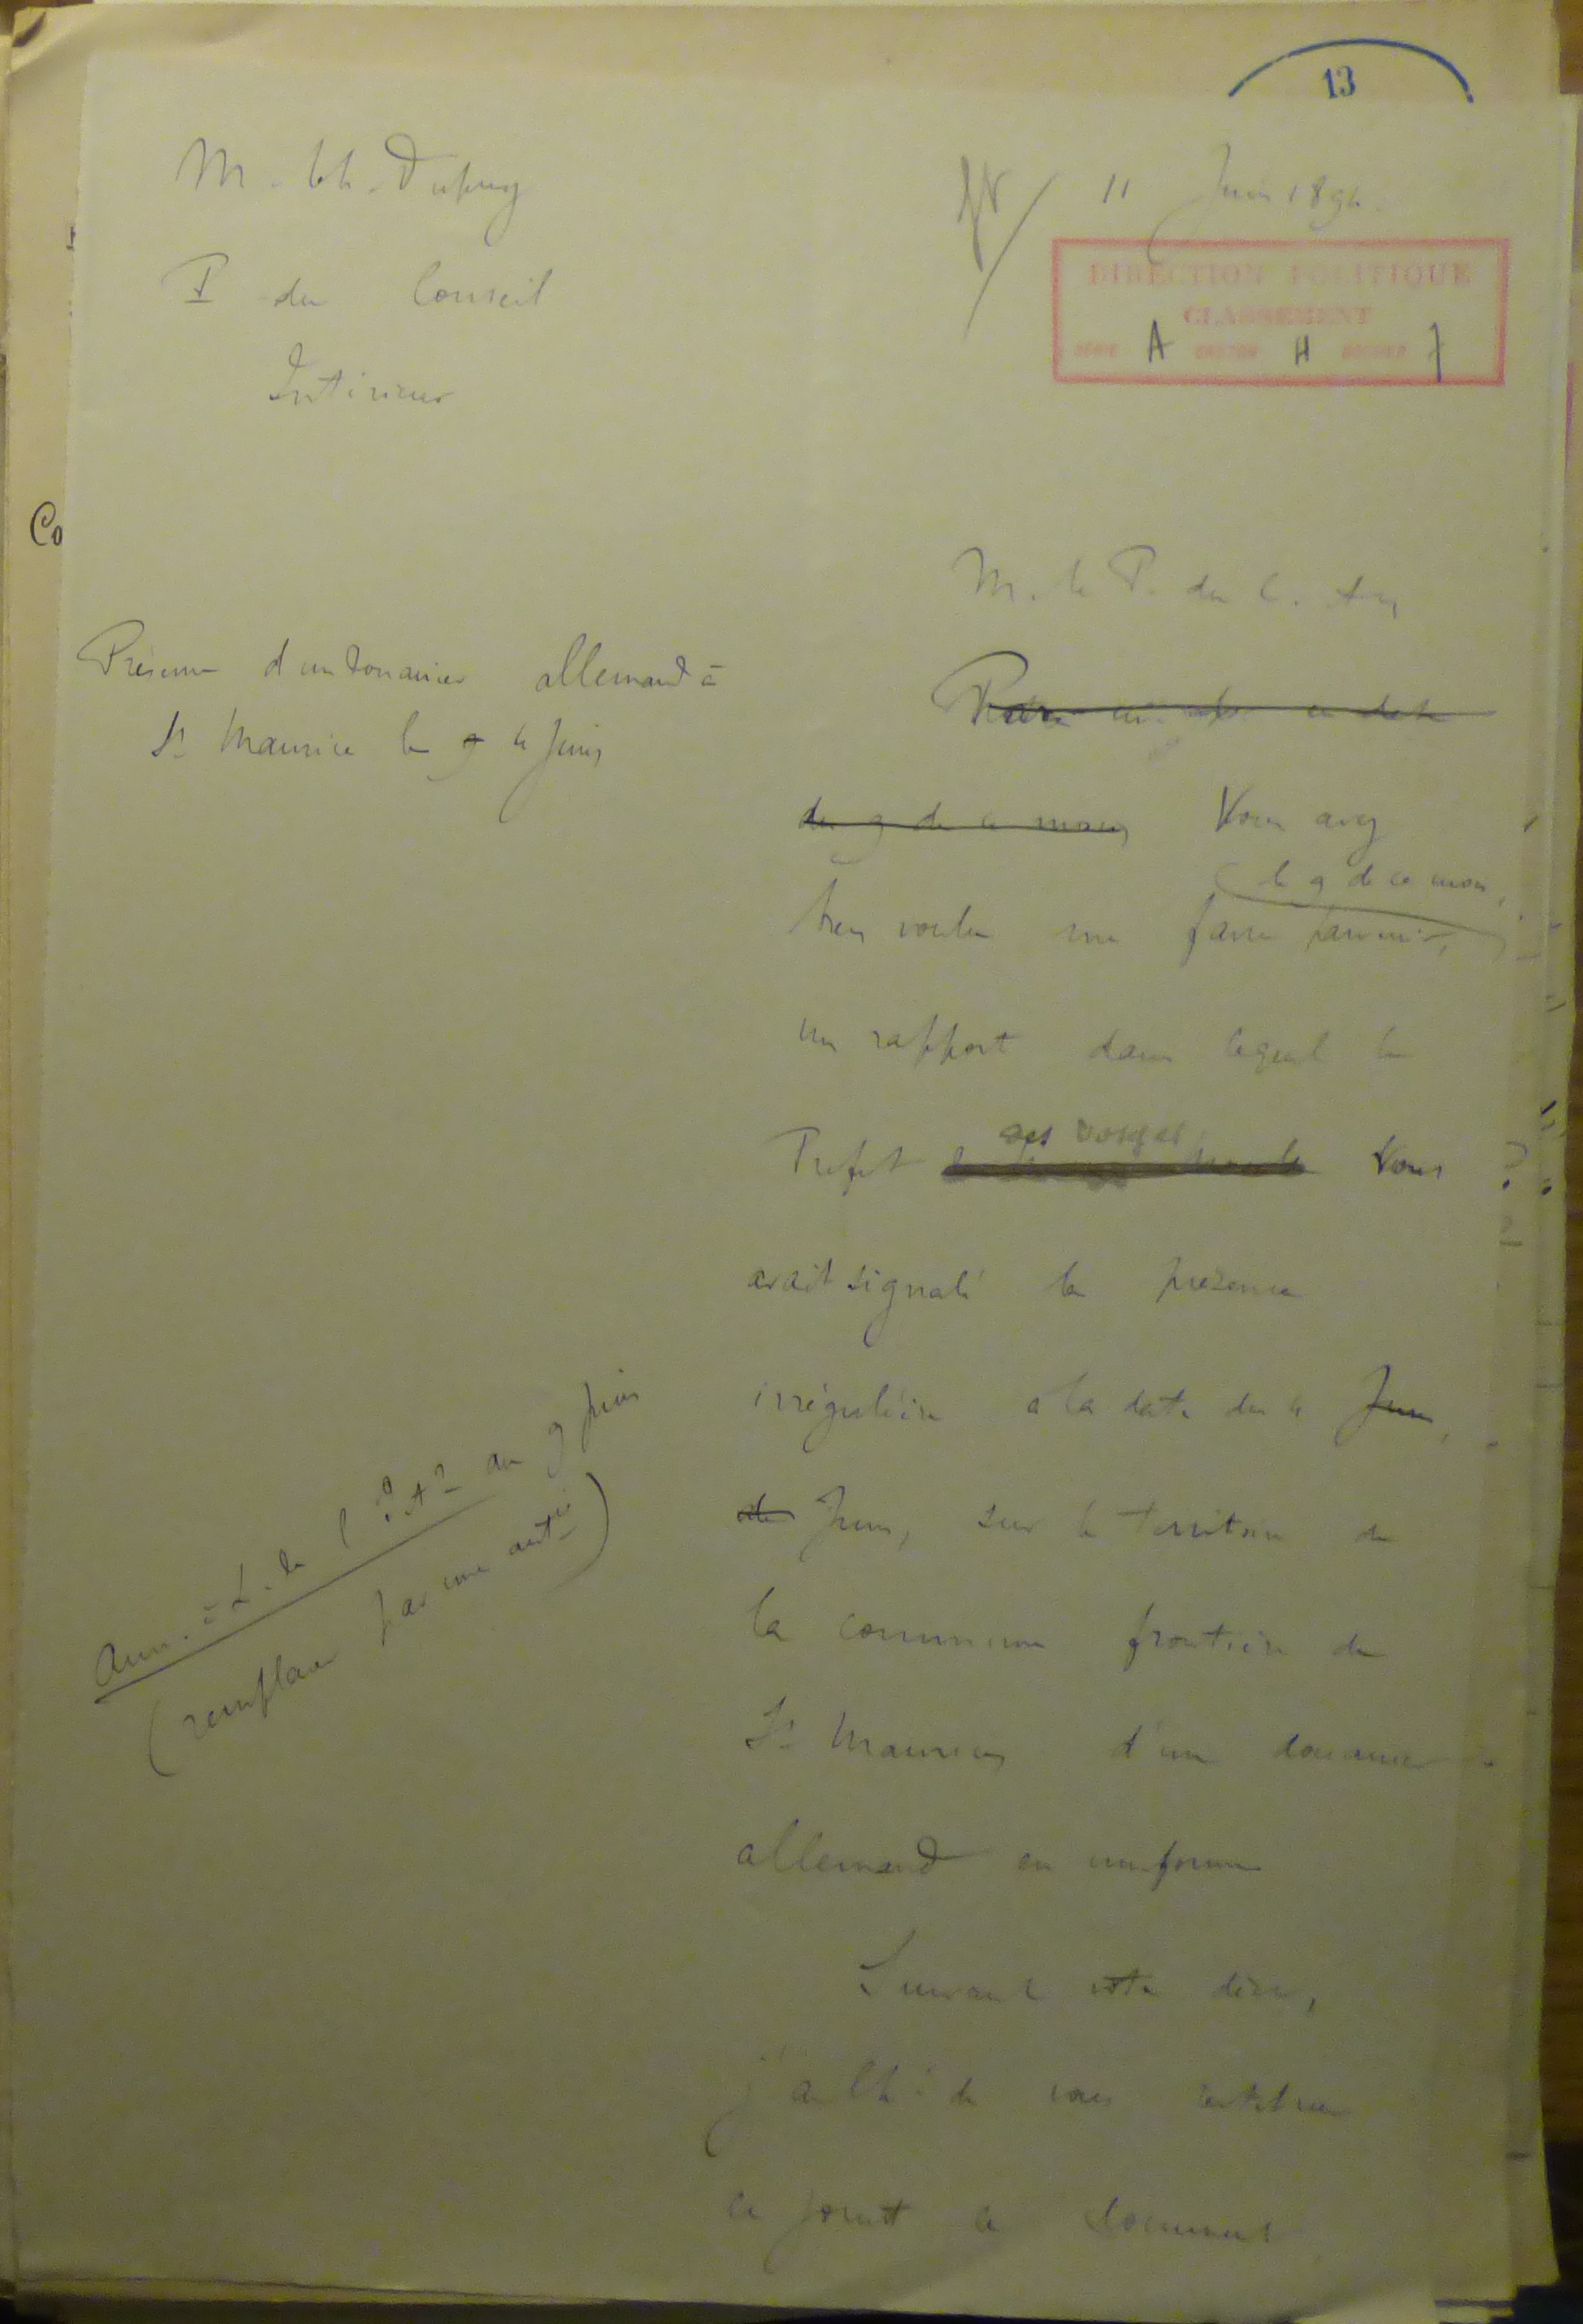 13
M. Ch. Dupuy
11 Juin 1894.
P. du Conseil
Intérieur
DIRECTION POLITIQUE
CLASSEMENT
SÉRIE A CARTON H DOSSIER 7
Co
M. le P. du C.
Présence d'un douanier allemand à
St Maurice le 4 Juin
du 9 de ce mois Vous avez
le 9 de ce mois,
bien voulu me faire parvenir,
un rapport dans lequel le
des Vosges
Préfet Vous
avait signalé la présence
irrégulière à la date du 4 Juin,
de Juin, sur le territoire de
la commune frontière de
St Maurice, d'un douanier
allemand en uniforme
Ann. = L. de l'Intr du 9 Juin
(remplacer par une autre)
Suivant votre désir,
j'ai l'h. de vous restituer
ci joint ce document